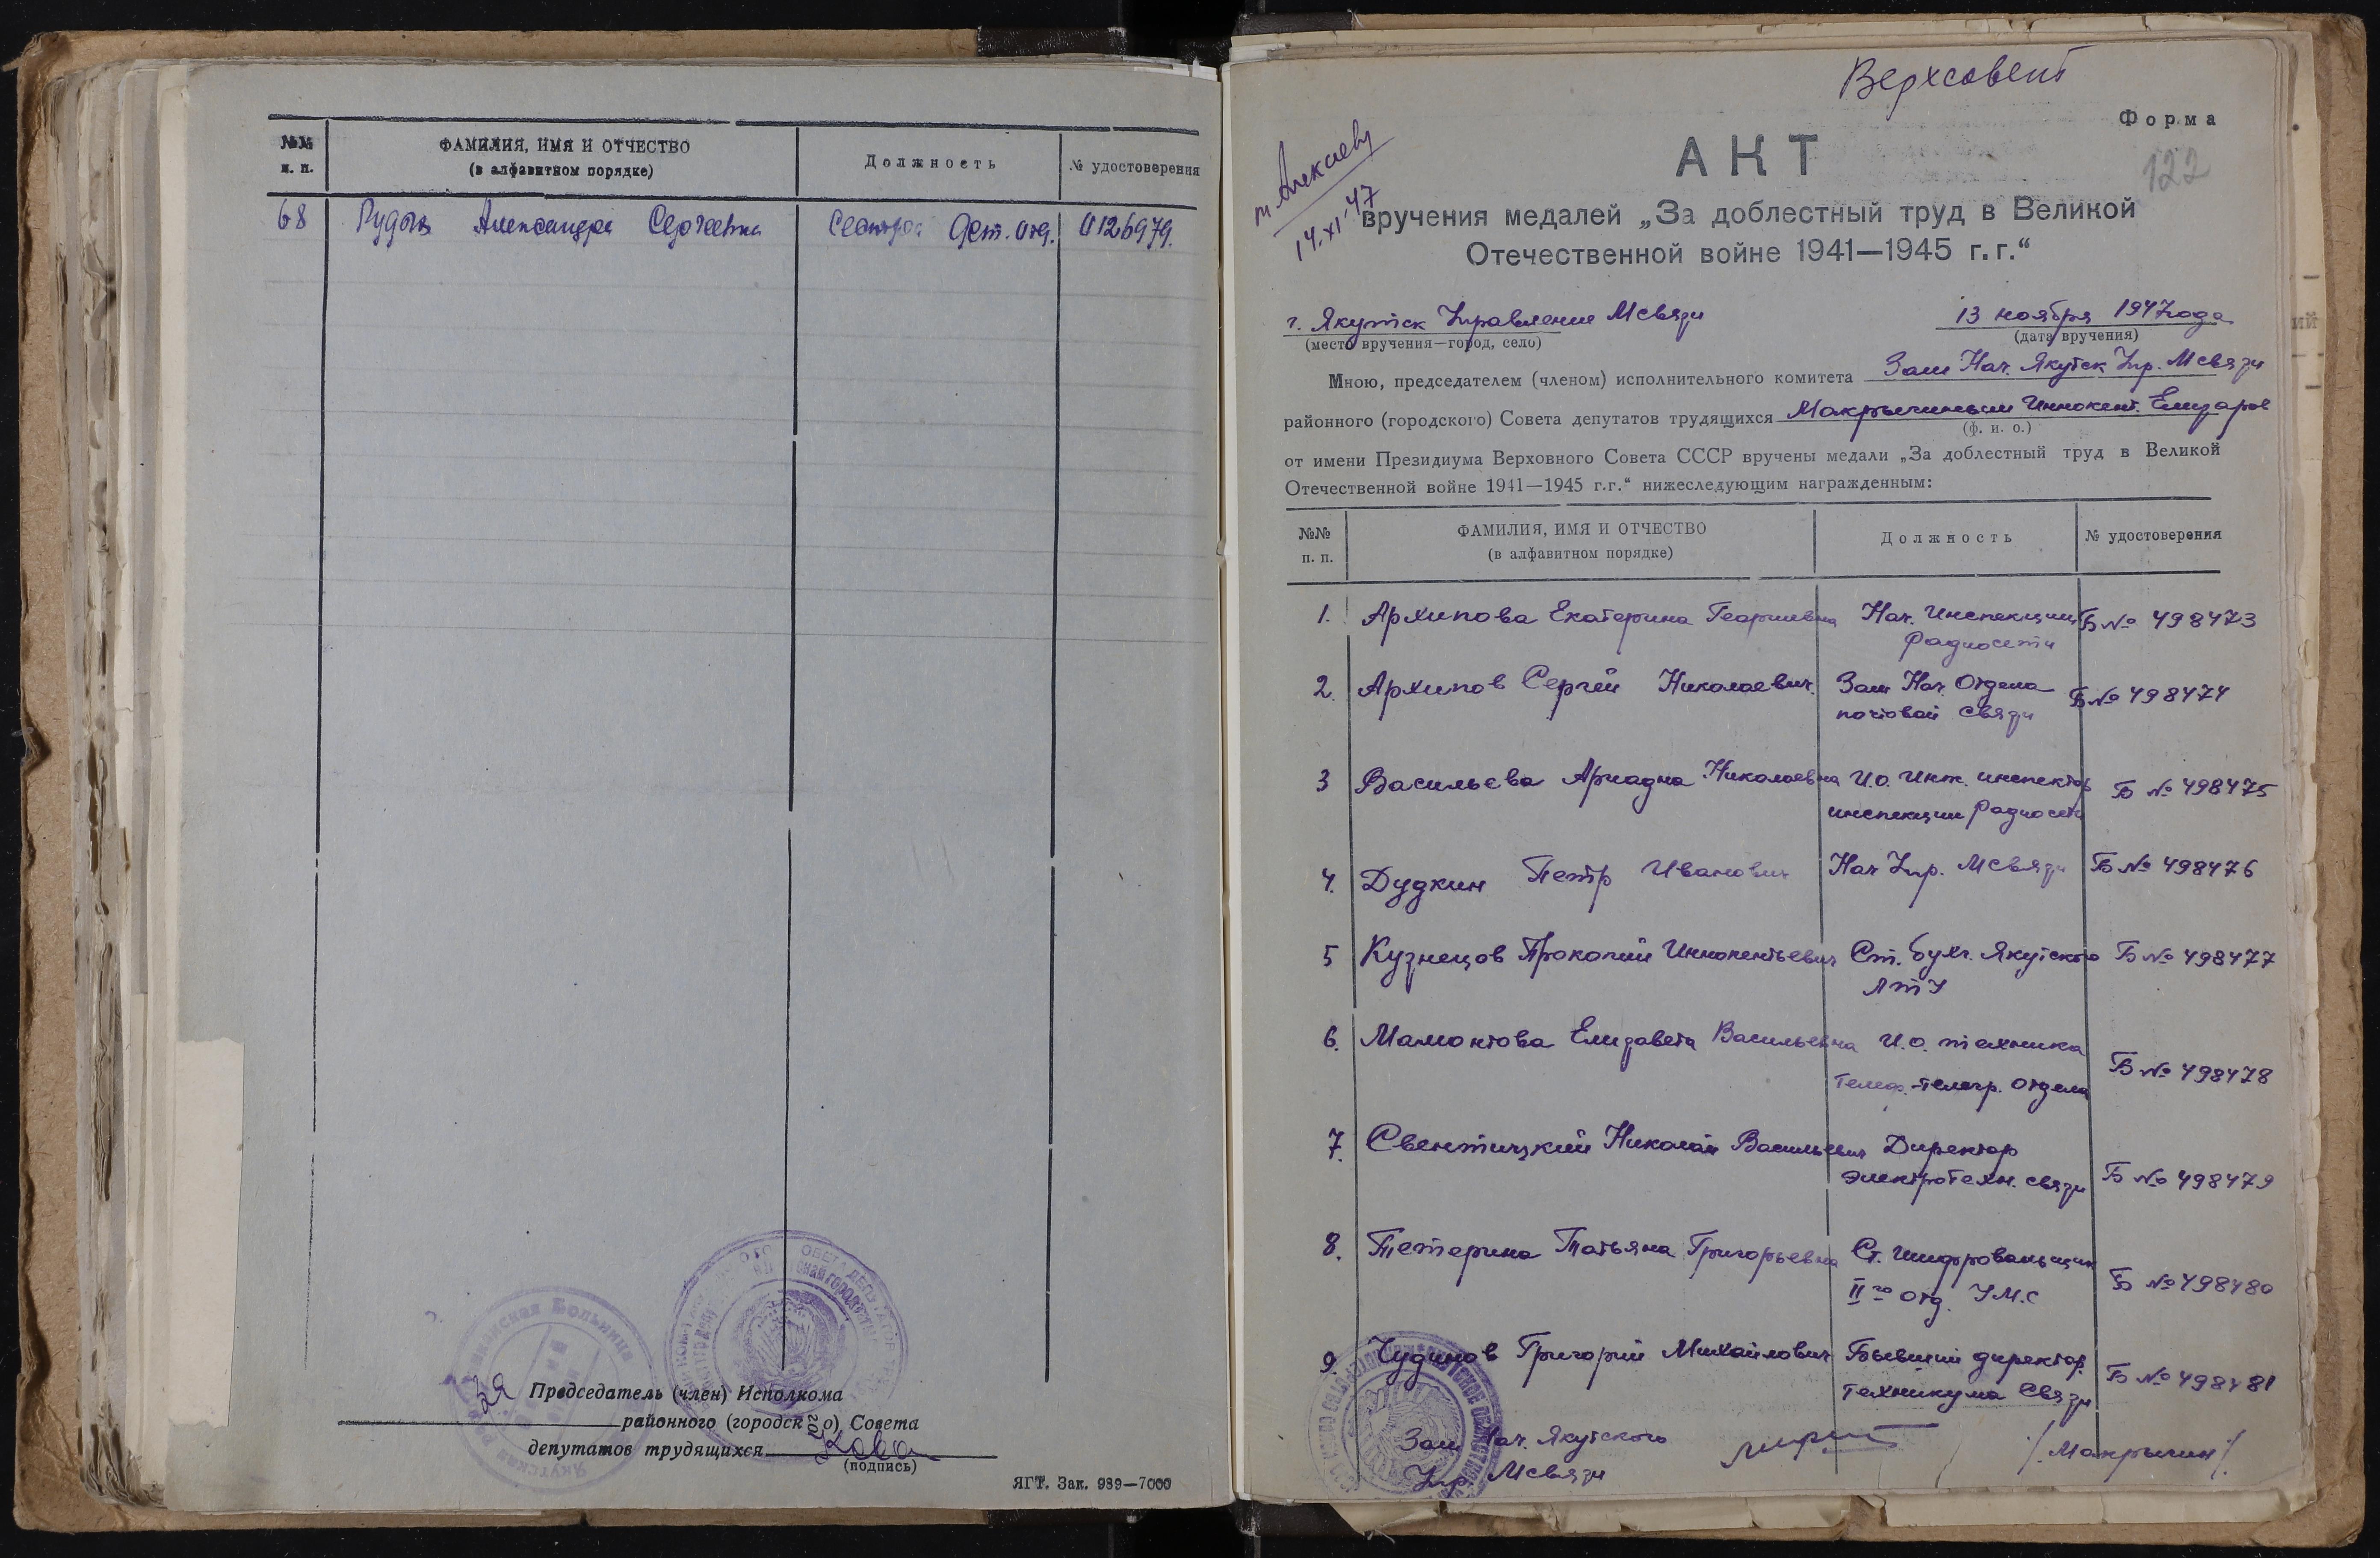 №№
п. п.
ФАМИЛИЯ, ИМЯ И ОТЧЕСТВО
(в алфавитном порядке)
Должность
№ удостоверения
68 Александра Сергеевна Сестра Дет. отд. 0126979.
Председатель (член) Исполкома
районного (городского) Совета
депутатов трудящихся
(подпись)
ЯГТ. Зак. 989—7000
Верхсовет
Форма
122
т. Алексееву
14.XI.47
АКТ
вручения медалей „За доблестный труд в Великой
Отечественной войне 1941—1945 г.г.“
г. Якутск Управление Мсвязи
(место вручения—город, село)
13 ноября 1947 года
(дата вручения)
Мною, председателем (членом) исполнительного комитета Зам Нач. Якутск Упр. Мсвязи
районного (городского) Совета депутатов трудящихся Макрыгиным Иннокент. Елизаров
(ф. и. о.)
от имени Президиума Верховного Совета СССР вручены медали „За доблестный труд в Великой
Отечественной войне 1941—1945 г.г.“ нижеследующим награжденным:
№№
п. п.
ФАМИЛИЯ, ИМЯ И ОТЧЕСТВО
(в алфавитном порядке)
Должность
№ удостоверения
1. Архипова Екатерина Георгиевна Нач. Инспекции Б № 498473
радиосети
2. Архипов Сергей Николаевич. Зам Нач. Отдела Б № 498474
почтовой связи
3 Васильева Ариадна Николаевна И.О. Инж. инспектор Б № 498475
инспекции радиосети
4. Дудкин Петр Иванович Нач Упр. Мсвязи Б № 498476
5 Кузнецов Прокопий Иннокентьевич Ст. бухг. Якутского Б № 498477
ЛТУ
6. Мамонтова Елизавета Васильевна И.О. техника
телеф.-телегр. отдела Б № 498478
7. Свентицкий Николай Васильевич Директор
электротехн. связи Б № 498479
8. Тетерина Татьяна Григорьевна Ст. шифровальщик
II го отд. У.М.С Б № 498480
9. Чудинов Григорий Михайлович Бывший директор Б № 498481
техникума связи
Зам Нач. Якутского
Упр. Мсвязи
/Макрыгин/